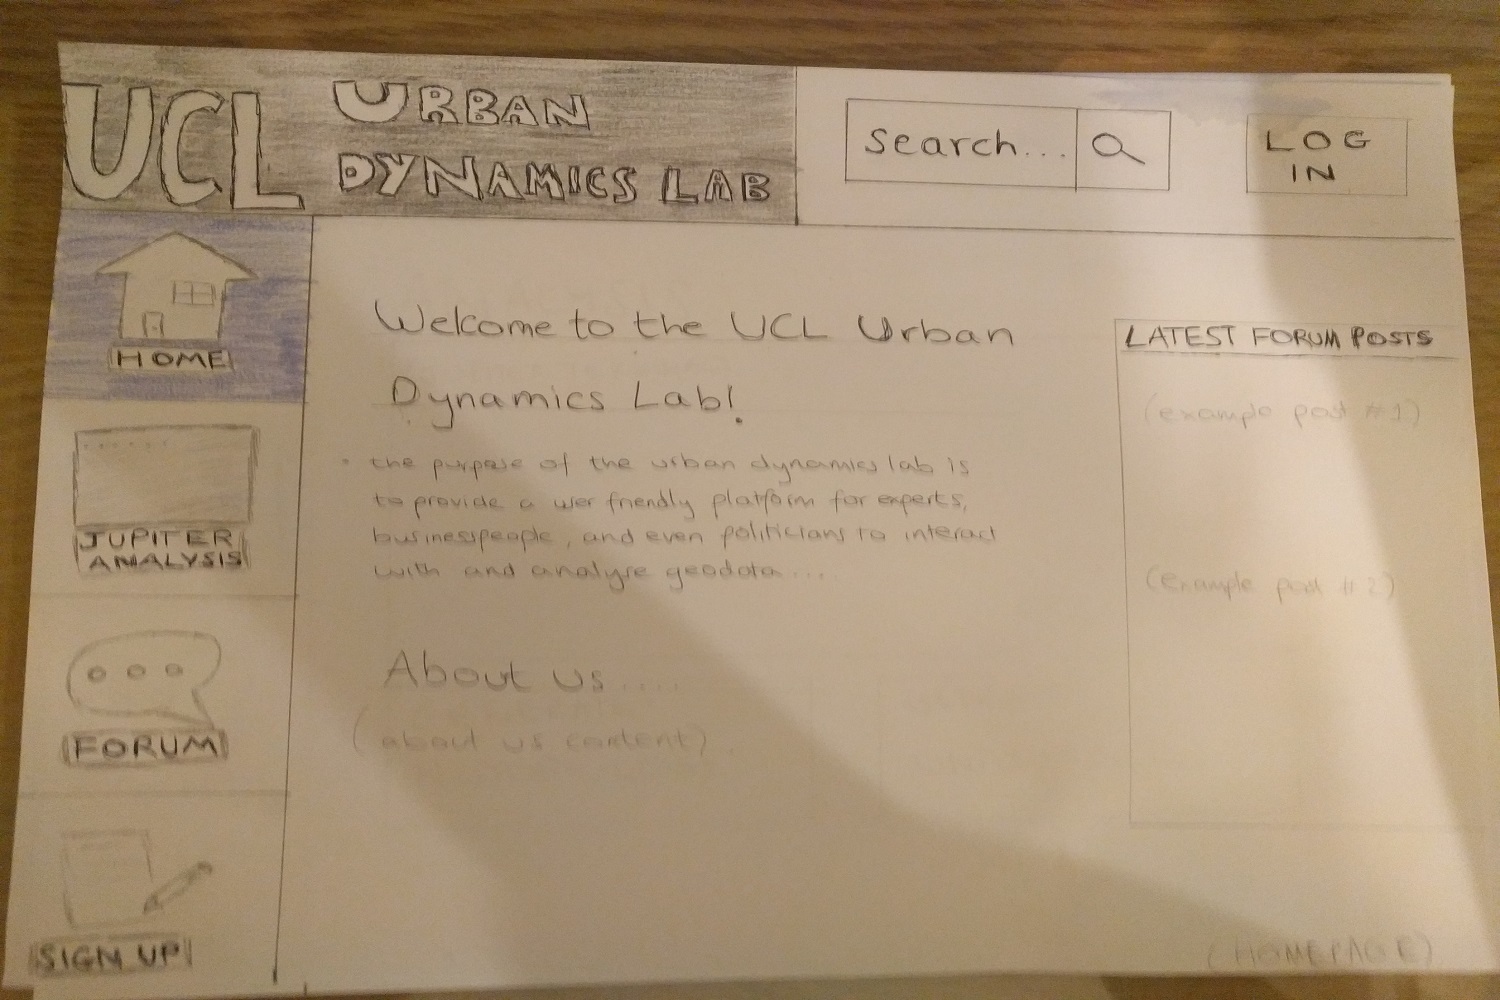 UCL
URBAN
DYNAMICS LAB
search...
LOG
IN
HOME
JUPITER
ANALYSIS
FORUM
SIGN UP
Welcome to the UCL Urban
Dynamics Lab!
• the purpose of the urban dynamics lab is
to provide a user friendly platform for experts,
businesspeople, and even politicians to interact
with and analyse geodata...
About us....
(about us content)
LATEST FORUM POSTS
(example post #1)
(example post #2)
(HOMEPAGE)